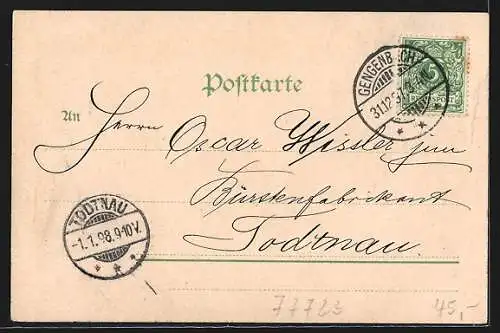 Postkarte
GENGENBACH
31.12.97
An
Herrn Oscar Wissler jun
Bürstenfabrikant
Todtnau.
TODTNAU
-1.1.98.9-10V.
77723
45,-